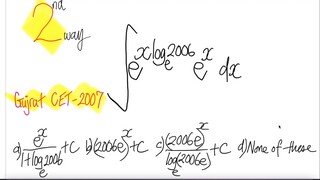 2nd way
∫ e^{x log_e 2006} e^x dx
Gujrat CET-2007
a) e^x/(1+log_e 2006) + C b) (2006e)^x + C c) (2006e)^x/log_e(2006e) + C d) None of these